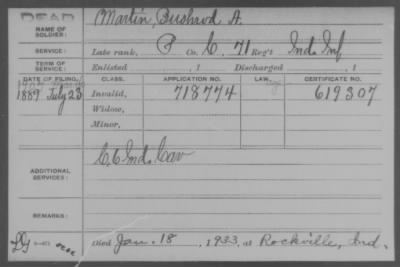 DEAD
NAME OF SOLDIER: Martin, Bushrod A.
SERVICE: Late rank, P Co. C, 71 Reg't Ind. Inf
TERM OF SERVICE: Enlisted , 1 Discharged , 1
DATE OF FILING. CLASS. APPLICATION NO. LAW. CERTIFICATE NO.
1889 July 23 Invalid, 718774 619307
Widow,
Minor,
ADDITIONAL SERVICES: C. 6 Ind. Cav
REMARKS:
Died Jan. 18, 1933, at Rockville, Ind.